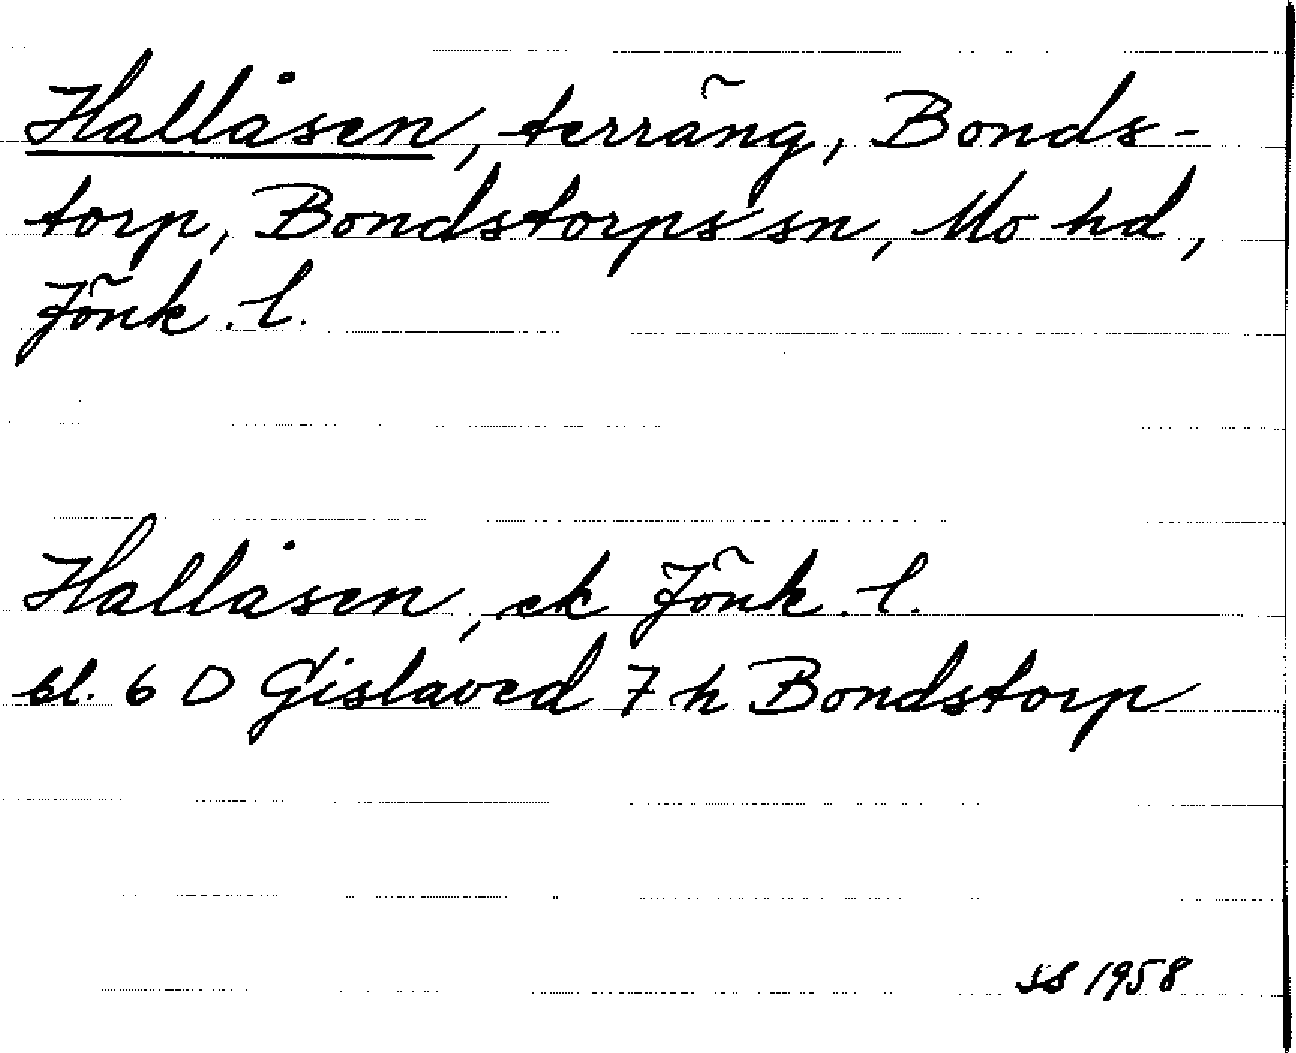 Hallåsen, terräng, Bonds-
torp, Bondstorps sn, Mo hd,
Jönk. l.
Hallåsen, ek Jönk. l.
bl. 6 D Gislaved 7 h Bondstorp
SS 1958